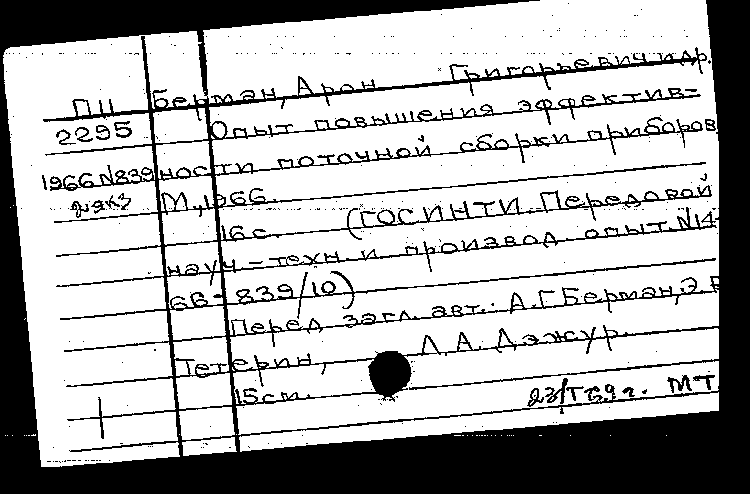 ПШ Берман, Арон Григорьевич и др.
2295 Опыт повышения эффектив-
1966 N839 ности поточной сборки приборов.
2 экз М., 1966.
16 с. (ГОСИНТИ. Передовой
науч-техн. и производ опыт. N14-
66-839/10)
Перед загл. авт.: А.Г. Берман, Э. В
Тетерин, Л. А. Дажур.
15 см.
МТ